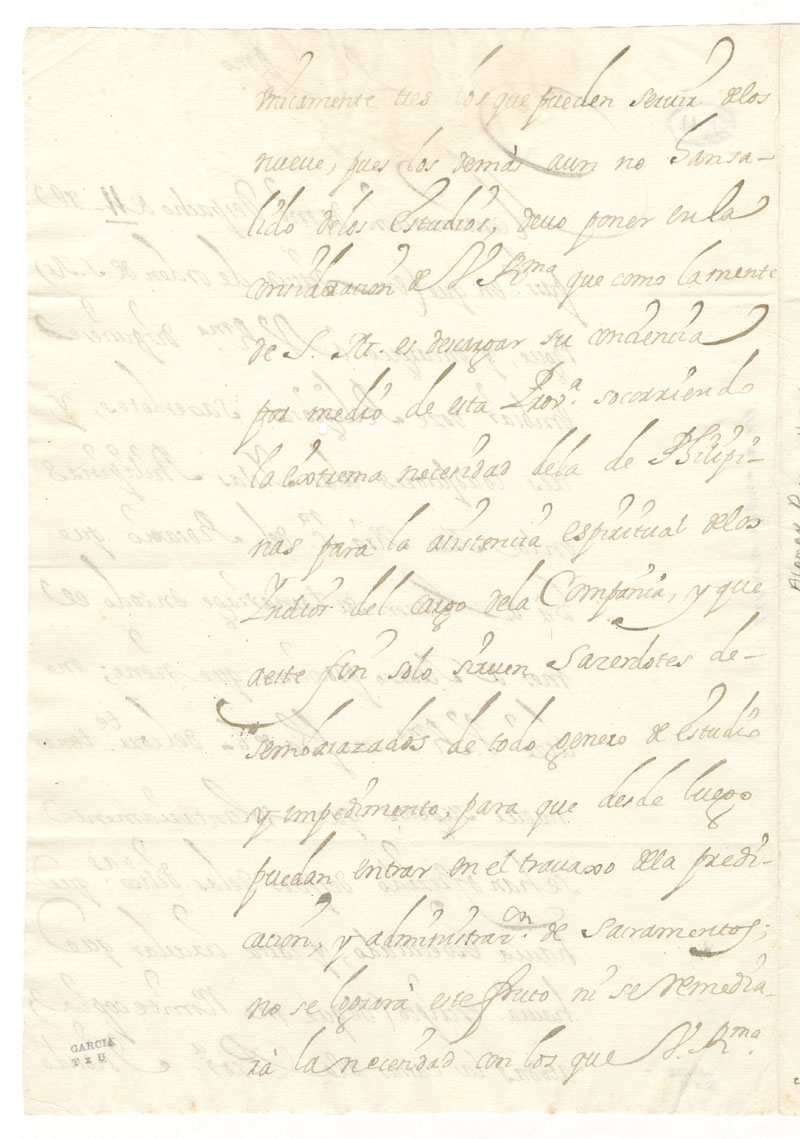 unicamente tres los que pueden servir de los
nueve, pues los demàs aun no han sa-
lido de los estudios, devo poner en la
consideracion de V. Rma que como la mente
de S. M. es descargar su conciencia
por medio de esta Prov.a socorriendo
la extrema necesidad dela de Philipi-
nas para la asistencia espiritual delos
Indios del cargo dela Compañia, y que
a este fin solo sirven Sacerdotes de-
sembarazados de todo genero de estudio
y impedimento, para que desde luego
puedan entrar en el travaxo dela predi-
cacion, y administrar.on de Sacramentos;
no se logrará este fruto ni se remedia-
rà la necesidad con los que V. Rma.
GARCIA